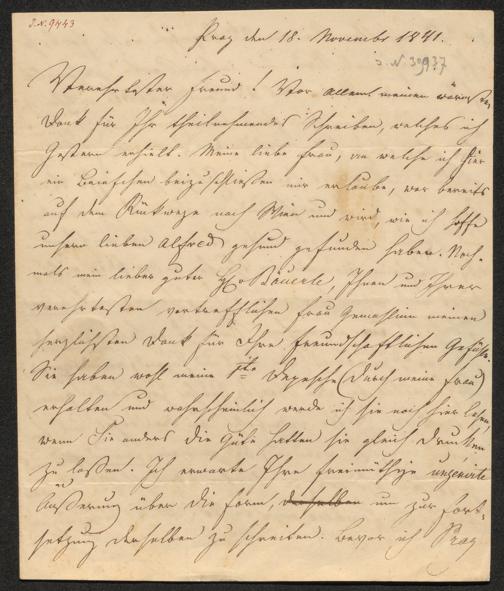 I.N. 9443
Prag den 18. November 1841.
I.N 39937
Verehrtester Freund! Vor Allem meinen wärmsten
Dank für Ihr theilnehmendes Schreiben, welches ich
Gestern erhielt. Meine liebe Frau, an welche ich hier
ein Briefchen beizuschließen mir erlaube, war bereits
auf dem Rückwege nach Wien und wird, wie ich hoffe
unsern lieben Alfred gesund gefunden haben. Noch-
mals mein lieber guter Bäuerle, Ihnen und Ihrer
verehrtesten vortrefflichen Frau Gemahlinn meinen
herzlichsten Dank für Ihre freundschaftlichen Gefühle.
Sie haben wohl meine 1te Depesche (durch meine Frau)
erhalten und wahrscheinlich werde ich sie noch hier lesen,
wenn Sie anders die Güte hatten sie gleich drucken
zu lassen. Ich erwarte Ihre freimüthige ungenirte
Äußerung über die Form, derselben um zur Fort-
setzung derselben zu schreiten. Bevor ich Prag